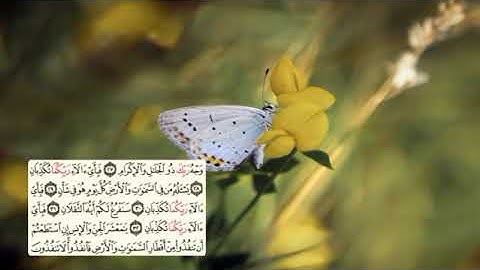 وَجْهُ رَبِّكَ ذُو ٱلْجَلَٰلِ وَٱلْإِكْرَامِ ٢٧ فَبِأَيِّ ءَالَآءِ رَبِّكُمَا تُكَذِّبَانِ
٢٨ يَسْـَٔلُهُۥ مَن فِي ٱلسَّمَٰوَٰتِ وَٱلْأَرْضِ كُلَّ يَوْمٍ هُوَ فِي شَأْنٍ ٢٩ فَبِأَيِّ
ءَالَآءِ رَبِّكُمَا تُكَذِّبَانِ ٣٠ سَنَفْرُغُ لَكُمْ أَيُّهَ ٱلثَّقَلَانِ ٣١ فَبِأَيِّ
ءَالَآءِ رَبِّكُمَا تُكَذِّبَانِ ٣٢ يَٰمَعْشَرَ ٱلْجِنِّ وَٱلْإِنسِ إِنِ ٱسْتَطَعْتُمْ
أَن تَنفُذُوا۟ مِنْ أَقْطَارِ ٱلسَّمَٰوَٰتِ وَٱلْأَرْضِ فَٱنفُذُوا۟ لَا تَنفُذُونَ